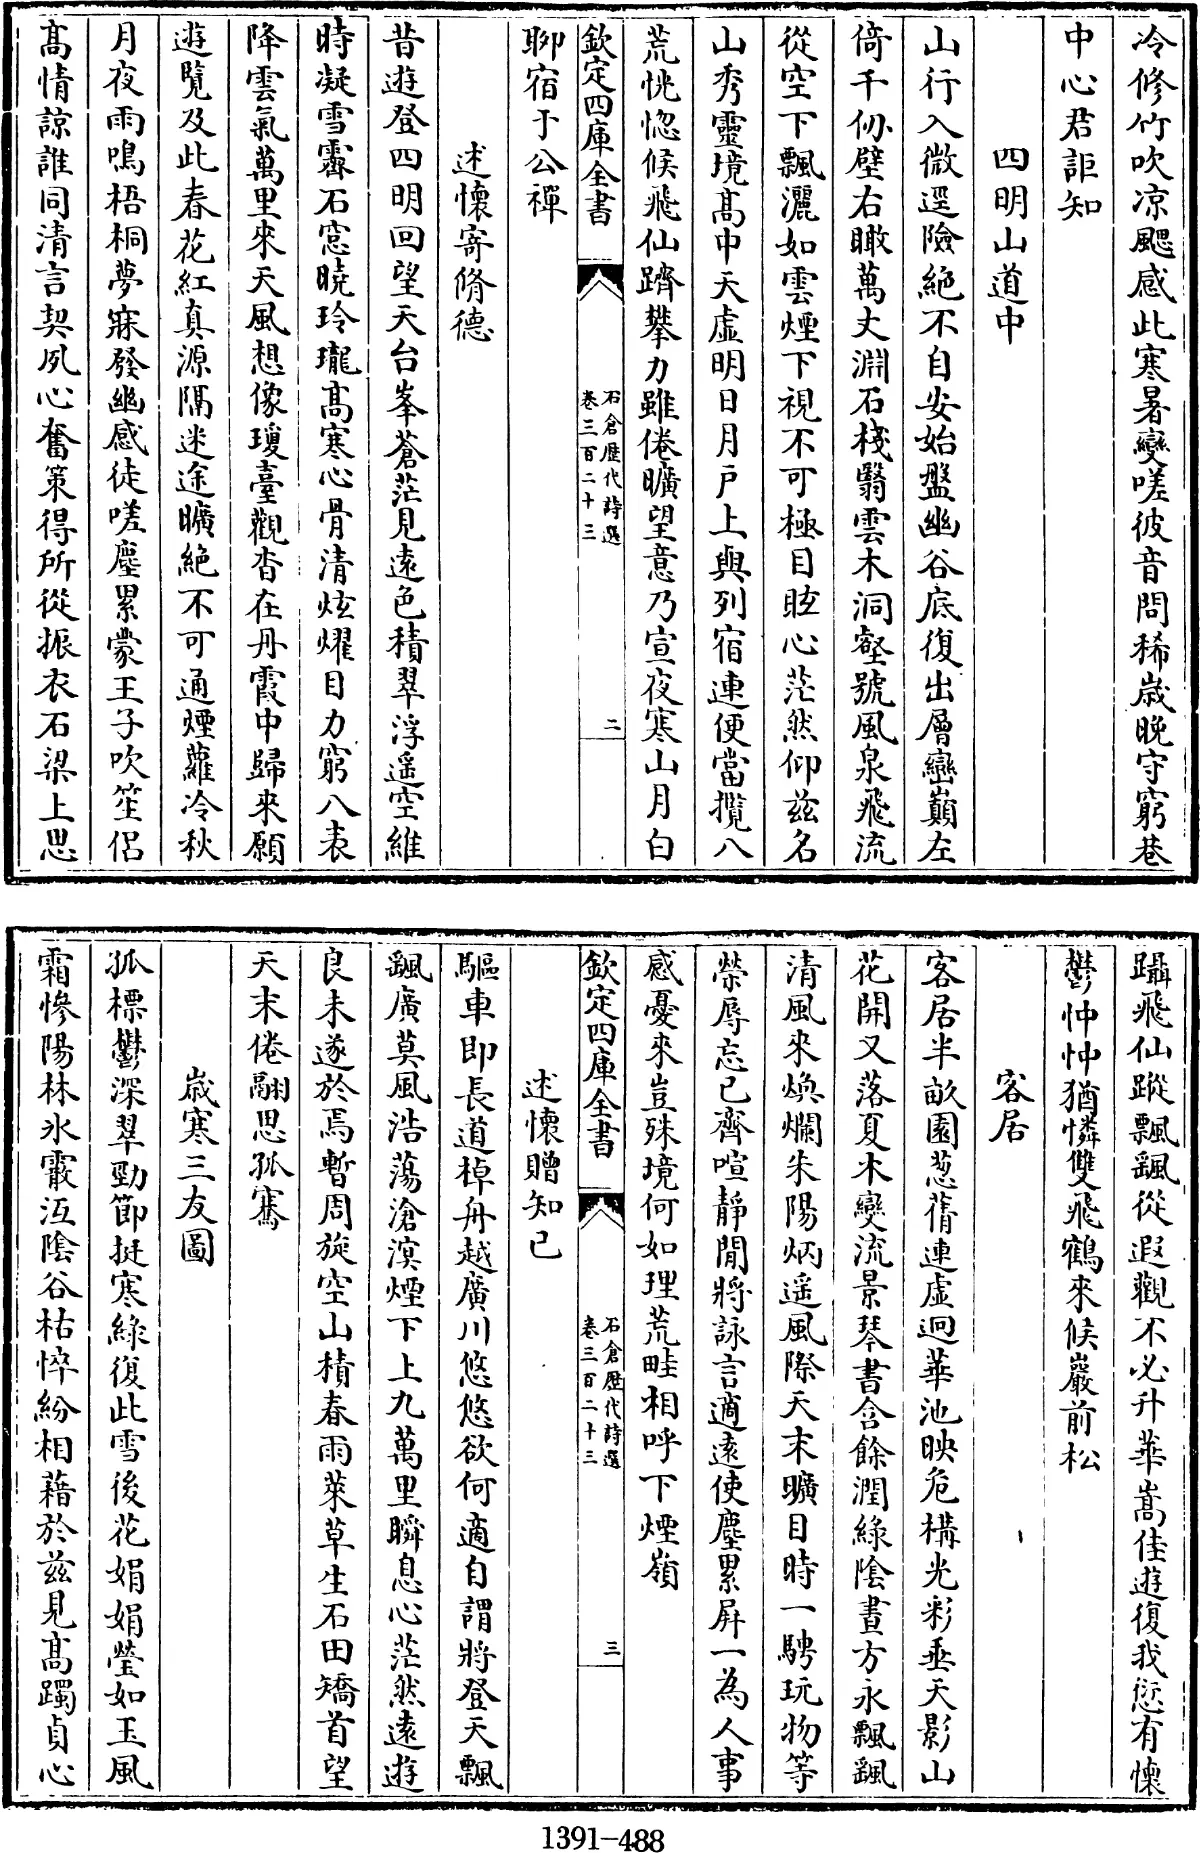 冷修竹吹凉颸感此寒暑變嗟彼音問稀歳晚守窮巷
中心君詎知
四明山道中
山行入微逕險絶不自安始盤幽谷底復出層巒巔左
倚千仞壁右瞰萬丈淵石棧翳雲木洞壑號風泉飛流
從空下飄灑如雲煙下視不可極目眩心茫然仰兹名
山秀靈境髙中天虛明日月戸上與列宿連便當攬八
荒恍惚候飛仙躋攀力雖倦曠望意乃宣夜寒山月白
欽定四庫全書
石倉歴代詩選
卷三百二十三
二
聊宿于公禪
述懷寄脩德
昔遊登四明回望天台峯蒼茫見遠色積翠浮遥空維
時凝雪霽石窓曉玲瓏髙寒心骨清炫燿目力窮八表
降雲氣萬里來天風想像瓊臺觀杳在丹霞中歸來願
遊覽及此春花紅真源隔迷途曠絶不可通煙蘿冷秋
月夜雨鳴梧桐夢寐發幽感徒嗟塵累蒙王子吹笙侶
髙情諒誰同清言契夙心奮策得所從振衣石梁上思
躡飛仙蹤飄飄從遐觀不必升華嵩佳遊復我愆有懐
鬱忡忡猶憐雙飛鶴來候巖前松
客居
客居半畝園葱蒨連虛迥華池映危構光彩垂天影山
花開又落夏木變流景琴書含餘潤緑隂晝方永飄飄
清風來煥爛朱陽炳遥風際天末曠目時一騁玩物等
榮辱忘已齊喧靜閒將詠言適遠使塵累屏一為人事
感憂來豈殊境何如理荒畦相呼下煙嶺
欽定四庫全書
石倉歴代詩選
卷三百二十三
三
述懷贈知已
驅車即長道棹舟越廣川悠悠欲何適自謂將登天飄
飄廣莫風浩蕩滄溟煙下上九萬里瞬息心茫然遠遊
良未遂於焉暫周旋空山積春雨萊草生石田矯首望
天末倦翮思孤騫
歳寒三友圖
孤標鬱深翠勁節挺寒緑復此雪後花娟娟瑩如玉風
霜慘陽林氷霰沍陰谷枯悴紛相藉於兹見髙躅貞心
1391-488